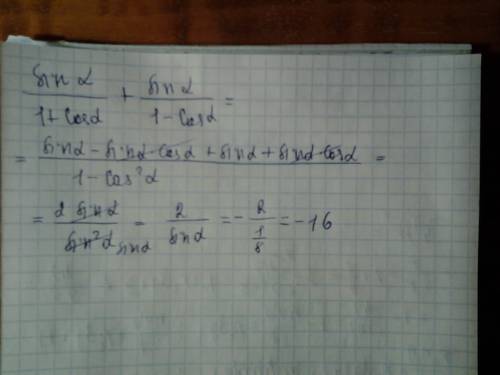 sin α / (1 + cos α) + sin α / (1 - cos α) =
= (sin α - sin α · cos α + sin α + sin α · cos α) / (1 - cos² α) =
= 2 sin α / sin² α sin α = 2 / sin α = - 2 / (1/8) = -16